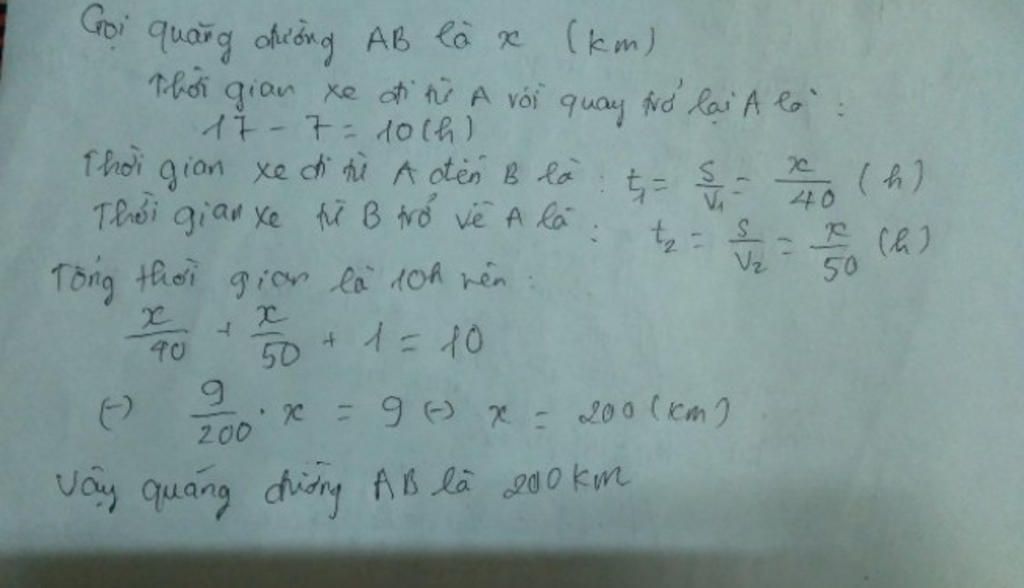 Gọi quãng đường AB là x (km)
Thời gian xe đi từ A rồi quay trở lại A là :
17 - 7 = 10 (h)
Thời gian xe đi từ A đến B là : t₁ = S/V₁ = x/40 (h)
Thời gian xe từ B trở về A là : t₂ = S/V₂ = x/50 (h)
Tổng thời gian là 10h nên :
x/40 + x/50 + 1 = 10
(-) 9/200 . x = 9 (-) x = 200 (km)
Vậy quãng đường AB là 200 km